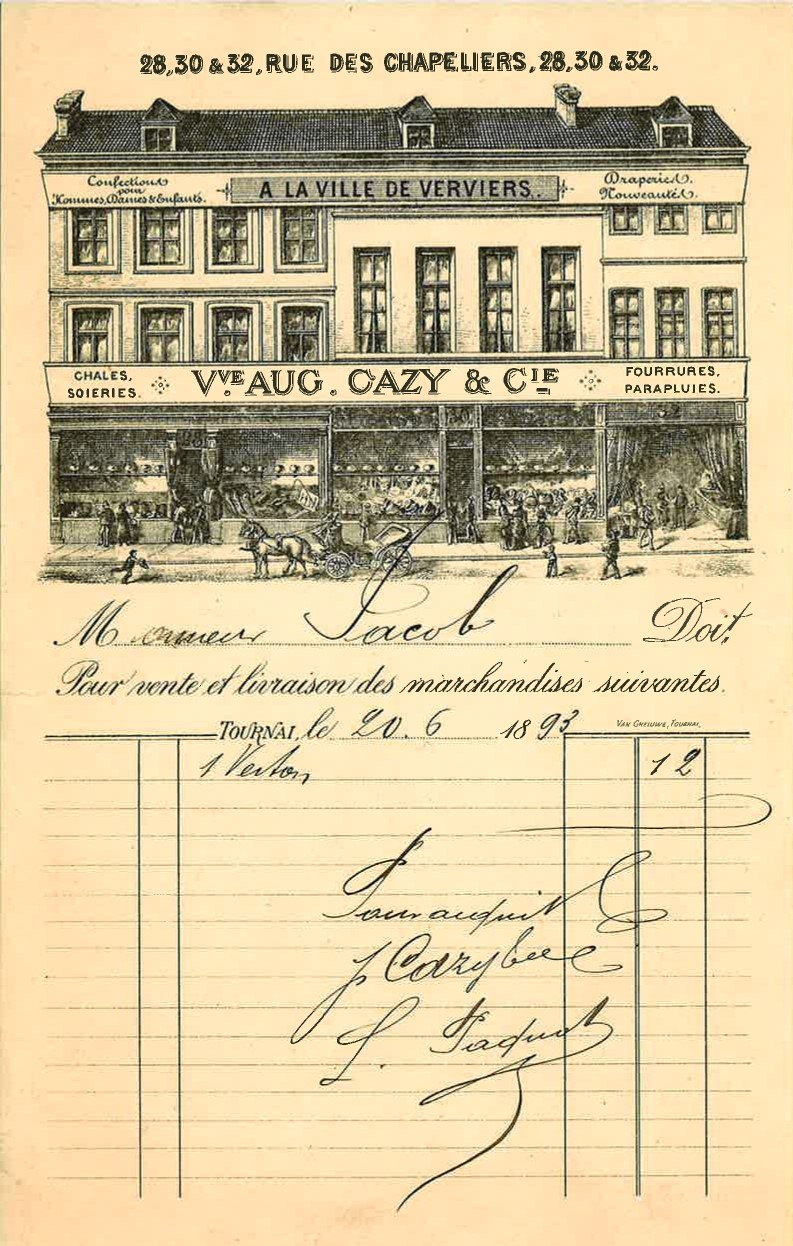 28,30 & 32, RUE DES CHAPELIERS, 28,30 & 32.
Confections pour Hommes, Dames & Enfants.
A LA VILLE DE VERVIERS.
Draperies. Nouveautés.
CHALES, SOIERIES.
VVE AUG. CAZY & CIE
FOURRURES, PARAPLUIES.
28
30
32
Monsieur Jacob Doit,
Pour vente et livraison des marchandises suivantes.
TOURNAI, le 20. 6 1893
VAN GHELUWE, TOURNAI.
1 Veston 12
Pour acquit
p Cazy &
L. Paquot